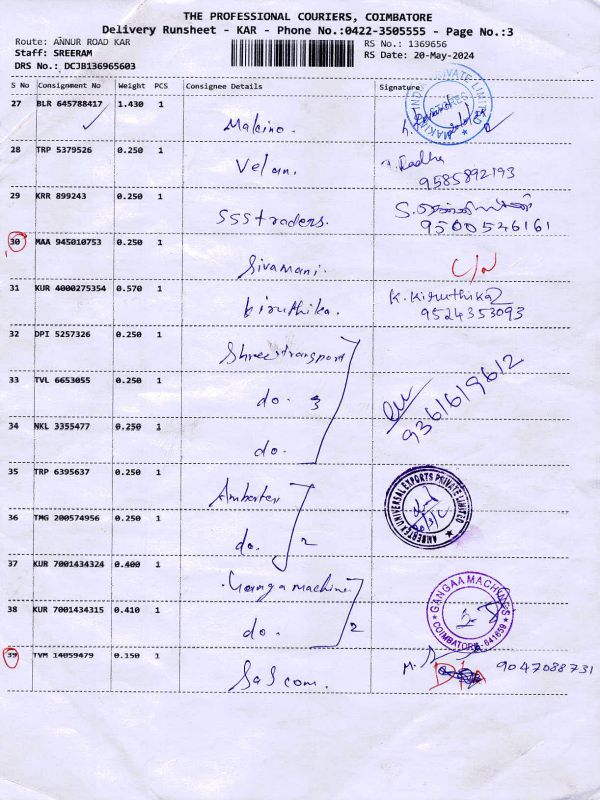 THE PROFESSIONAL COURIERS, COIMBATORE
Delivery Runsheet - KAR - Phone No.:0422-3505555 - Page No.:3
Route: ANNUR ROAD KAR RS No.: 1369656
Staff: SREERAM RS Date: 20-May-2024
DRS No.: DCJB136965603
S No Consignment No Weight PCS Consignee Details Signature
27 BLR 645788417 1.430 1
Makino.
28 TRP 5379526 0.250 1
Velan. Radha
9585892193
29 KRR 899243 0.250 1
SSS traders.
9500526161
30 MAA 945010753 0.250 1
Sivamani. C/N
31 KUR 4000275354 0.570 1 K. Kiruthika
kiruthika. 9524353093
32 DPI 5257326 0.250 1
Shree transport
33 TVL 6653055 0.250 1
do. 3 9361619612
34 NKL 3355477 0.250 1
do.
35 TRP 6395637 0.250 1
Ambertex AMBERTEX UNIVERSAL EXPORTS PRIVATE LIMITED
36 TMG 200574956 0.250 1
do. 2
37 KUR 7001434324 0.400 1
Ganga machine. GANGAA MACHINES
COIMBATORE - 641659
38 KUR 7001434315 0.410 1
do. 2
39 TVM 14059479 0.150 1
M. 9047088731
SaS com.